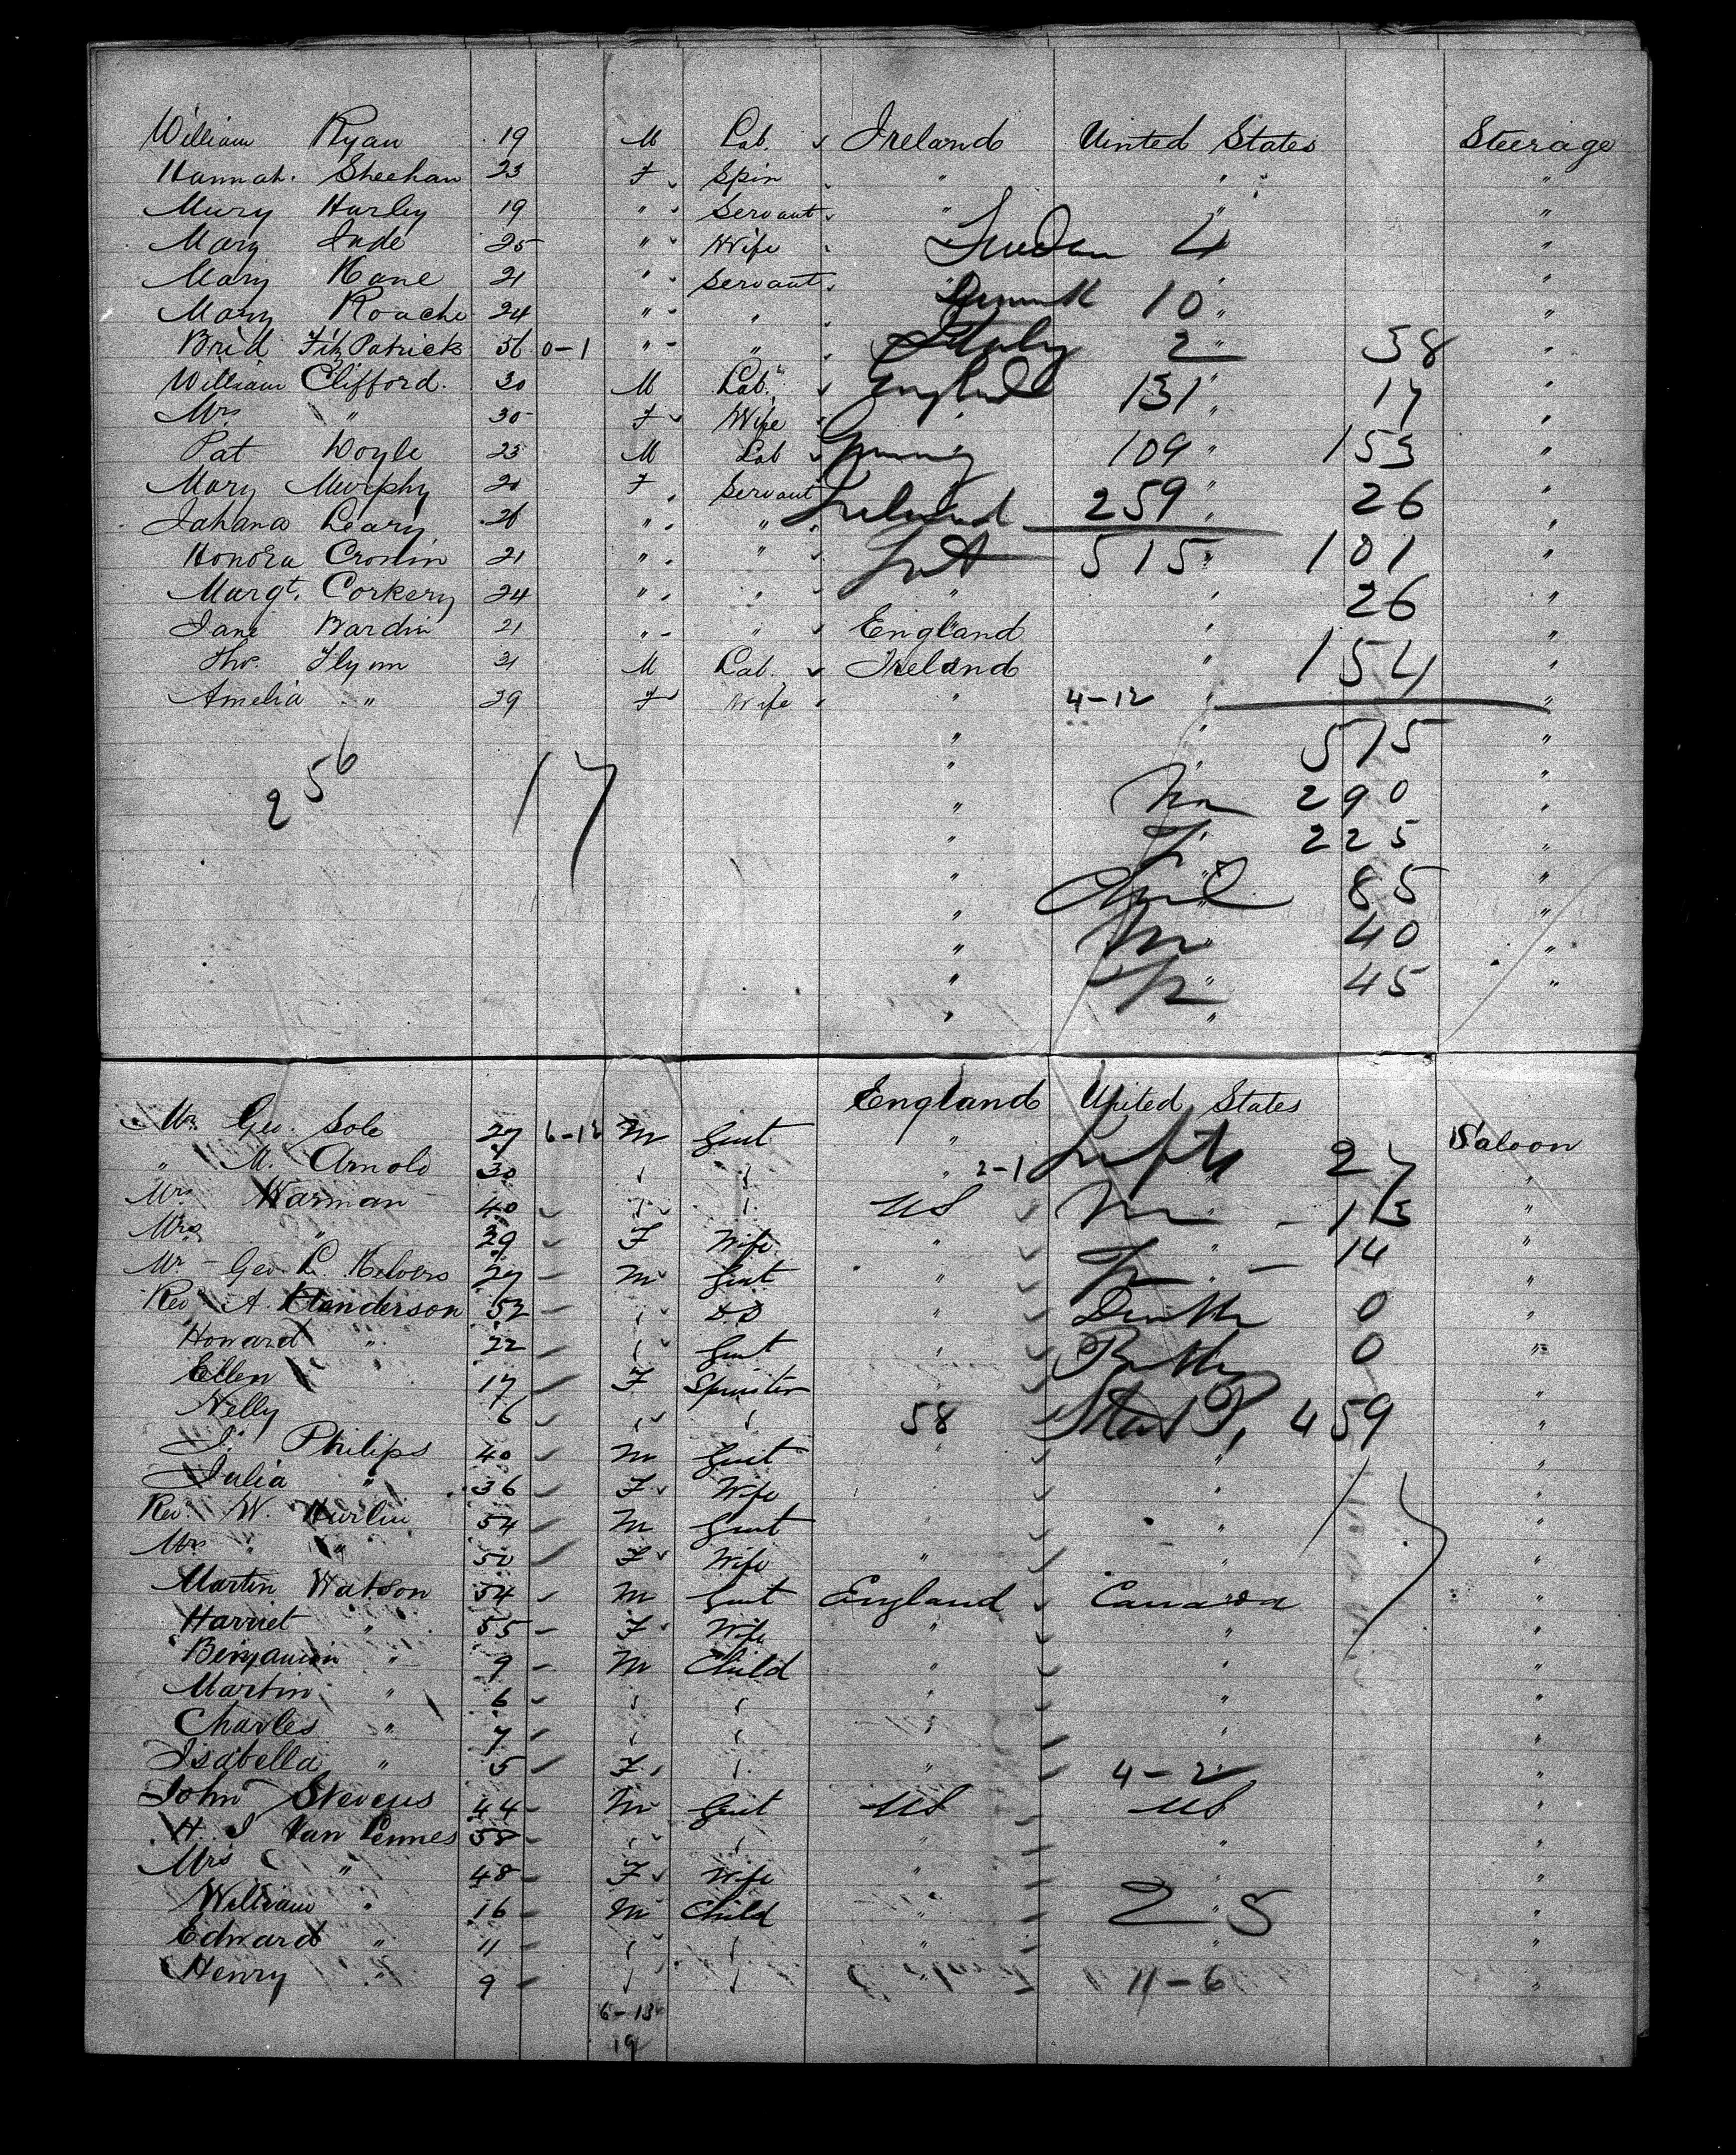 William Ryan 19 M Lab. Ireland United States Steerage
Hannah. Sheehan 23 F Spin " " "
Mary Hurley 19 " Servant " " "
Mary Jude 25 " Wife Sweden 4 "
Mary Kane 21 " Servant " 10 "
Mary Roache 24 " " Denmk "
Brid FitzPatrick 56 0-1 " " Italy 2 " 58 "
William Clifford. 30 M Lab. England 131 " 17 "
Mrs " 30 F Wife " "
Pat Doyle 23 M Lab Germany 109 " 153 "
Mary Murphy 20 F Servant 259 " 26 "
Johana Leary 26 " " Ireland "
Honora Cronin 21 " " 515 " 101 "
Margt. Corkery 24 " " " " 26 "
Jane Bardin 21 " " England " "
Tho. Flynn 31 M Lab. Ireland " 154 "
Amelia " 29 F Wife " 4-12 " "
" " 575 "
256 17
" 290 "
" 225 "
" 85 "
" 40 "
" 45 "
" "
England United States
Mr Geo. Sole 27 6-12 M Gent " Saloon
" M. Arnold 30 " " " 2-1 27 "
Mrs Warman 40 " " US M - 113 "
Mrs " 29 F Wife " " 14 "
Mr - Geo. L. 27 M Gent " "
Rev A. Henderson 52 " DD " Deaths 0 "
Howard " 22 " Gent " Births 0 "
Ellen 17 F Spinster "
Nelly 6 " " 58 459 "
J. Philips 40 M Gent " "
Julia " 36 F Wife " "
Rev. W. Hurlin 54 M Gent " "
Mrs " " 50 F Wife " " "
Martin Watson 54 M Gent England Canada "
Harriet " 55 F Wife " " "
Benjamin " 9 M Child " " "
Martin " 6 " " " " "
Charles " 7 " " " " "
Isabella " 5 F " " 4-2 "
John Stevens 44 M Gent US US "
H. J Van Lennes 58 " " " " "
Mrs " 48 F Wife " " "
William " 16 M Child " 25 "
Edward " 11 " " " " "
Henry 9 " " " 11-6 "
6-13
19